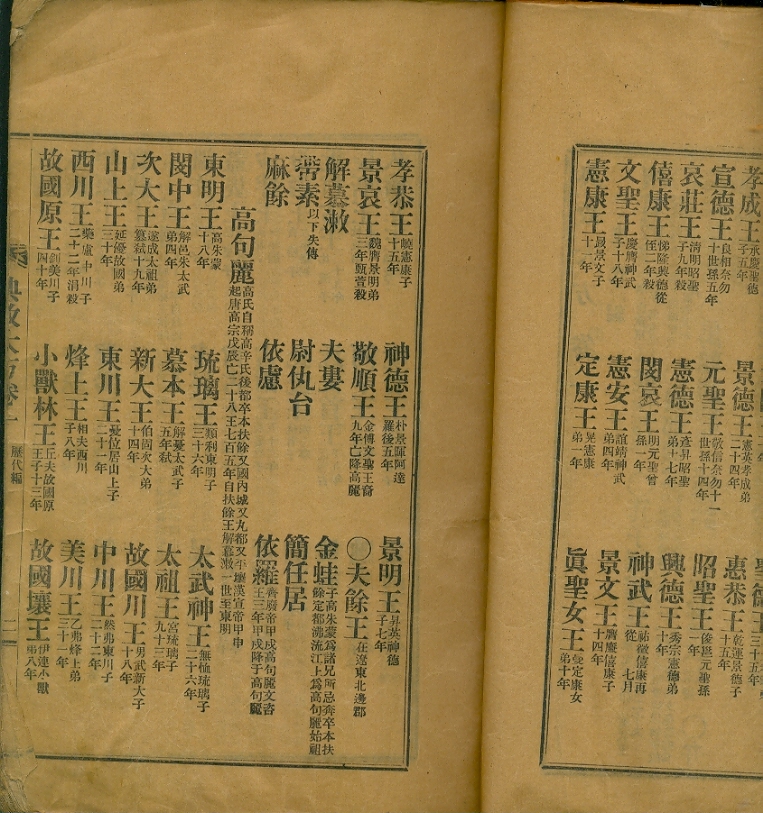 孝成王 承慶聖德子五年
景德王 憲英孝成弟二十四年
宣德王 良相奈勿十世孫五年
元聖王 敬信奈勿十二世孫十四年
惠恭王 乾運景德子十五年
哀莊王 清明昭聖子九年殺
憲德王 彥昇昭聖弟十七年
昭聖王 俊邕元聖孫一年
僖康王 悌隆興德從侄二年殺
閔哀王 明元聖曾孫一年
興德王 秀宗憲德弟十年
文聖王 慶膺神武子十八年
憲安王 誼靖神武弟四年
神武王 祐徵僖康再從 七月
憲康王 晸景文子十一年
定康王 晃憲康弟一年
景文王 膺廉僖康子十四年
眞聖女王 曼定康女弟十年
孝恭王 嶢憲康子十五年
神德王 朴景暉阿達羅後五年
景明王 昇英神德子七年
景哀王 魏膺景明弟三年甄萱殺
敬順王 金傅文聖王裔九年亡降高麗
〇夫餘王 在遼東北邊郡
解慕漱
夫婁
金蛙 子高朱蒙爲諸兄所忌奔卒本扶餘定都沸流江上爲高句麗始祖
帶素 以下失傳
尉仇台
簡任居
麻餘
依慮
依羅 齊廢帝甲戌高句麗文咨王三年甲戌降于高句麗
高句麗 高氏自稱高辛氏後都卒本扶餘又國內城又丸都又平壤漢宣帝甲申起唐高宗戊辰亡二十八王七百五年自扶餘王解慕漱一世至東明
東明王 高朱蒙十八年
琉璃王 類利東明子三十六年
太武神王 無恤琉璃子二十六年
閔中王 解邑朱太武弟四年
慕本王 解憂太武子五年弑
太祖王 宮琉璃子九十三年
次大王 遂成太祖弟簒弑十九年
新大王 伯固次大弟十四年
故國川王 男武新大子十八年
山上王 延優故國弟三十年
東川王 憂位居山上子二十一年
中川王 然弗東川子二十二年
西川王 藥盧中川子二十二年
烽上王 相夫西川子八年
美川王 乙弗烽上弟三十一年
故國原王 釗美川子四十年
小獸林王 丘夫故國原王子十三年
故國壤王 伊連小獸弟八年
典故大方卷
歷代編
二